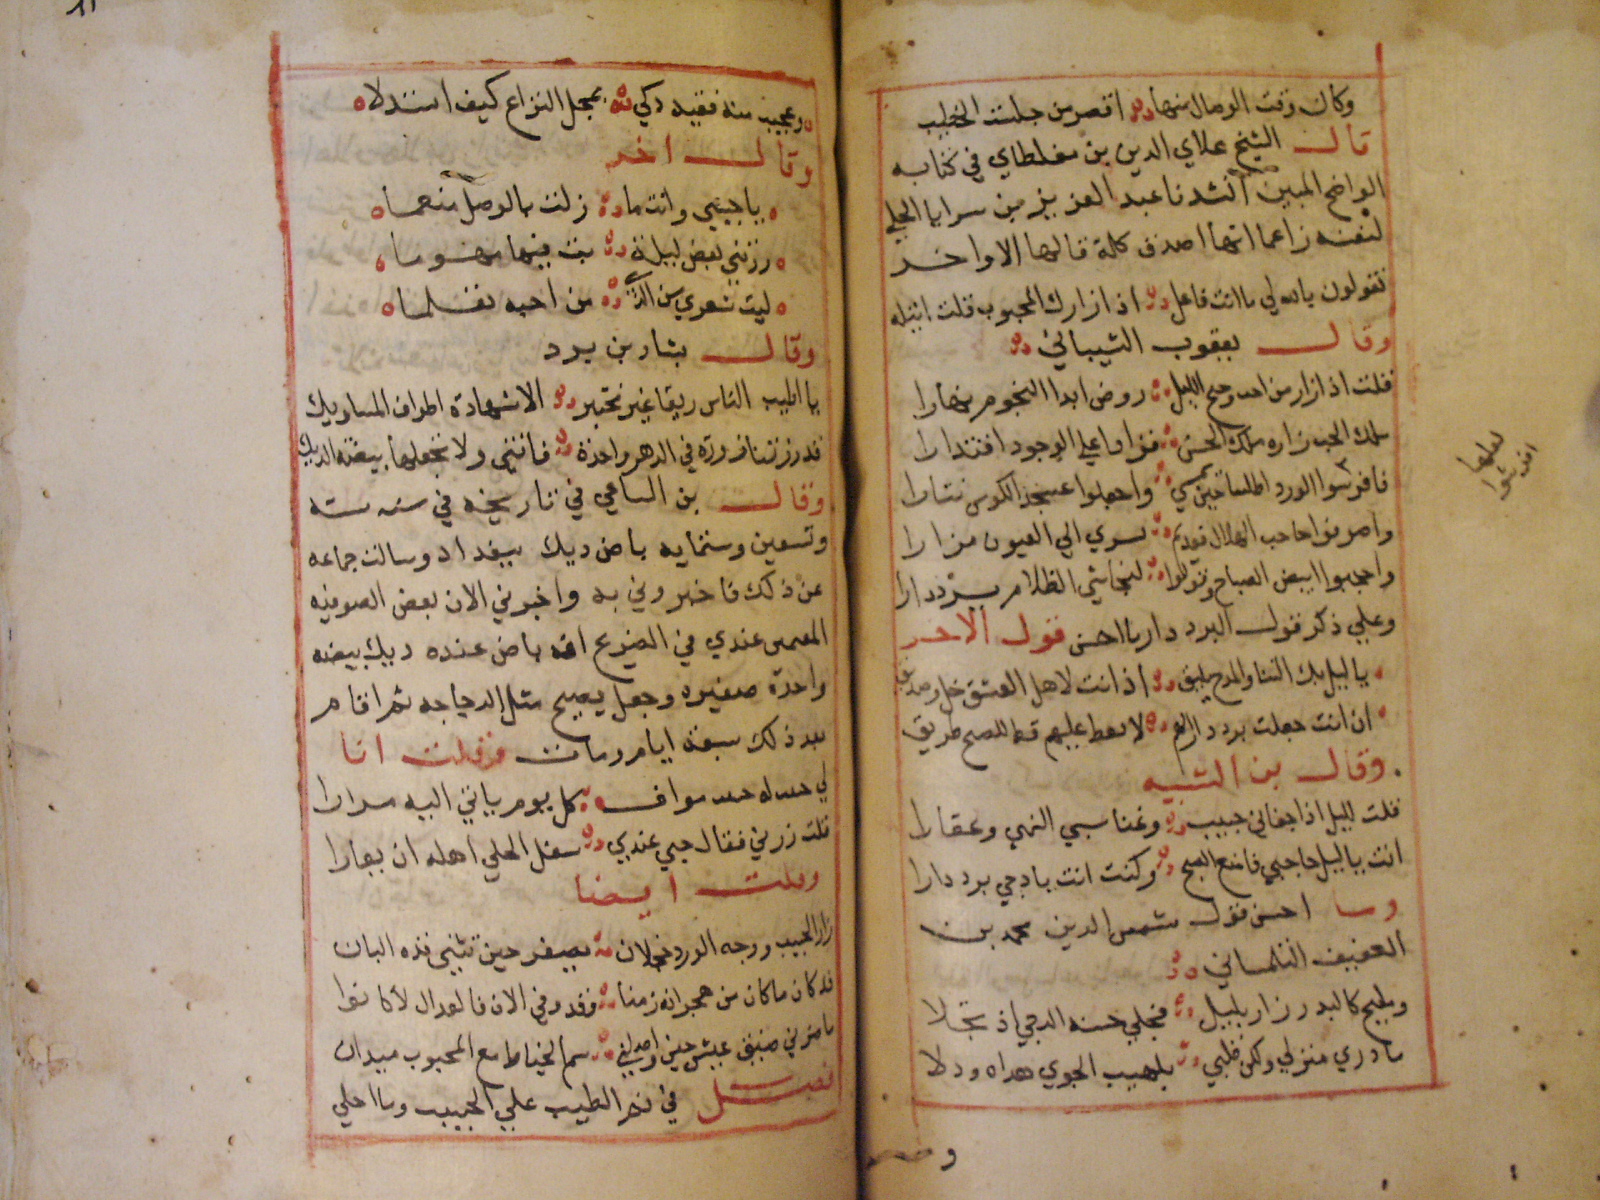 وكان وقت الوصال منها اقصر من جلست الخطيب
قال الشيخ علاي الدين بن مغلطاي في كتابه
الواضح المبين انشدنا عبد العزيز من سرايا الحلي
لنفسه زاعما انها اصدق كلمة قالها الاواخر
تقولون بالله لي ما انت فاعل اذا زارك المحبوب قلت
وقال يعقوب الشيباني
قلت اذ زار من احب وجنح الليل روض ابدا النجوم نهارا
ملك الحب زاره ملك الحسن على الوجود اقتدارا
فافرشوا الورد اطلسا واجعلوا عسجد الكوس نثارا
واصرفوا حاجب الهلال يسري الي العيون مزارا
واحجبوا ابيض الصباح وقولوا لنجاشي الظلام برددارا
وعلي ذكر قول البرددار ما احسن قول الاخر
يا ليل بك الثنا والمدح يليق اذ انت لاهل العشق خل وصديق
ان انت جعلت برددار لا تعط عليهم قط للصبح طريق
وقال بن النبيه
قلت لليل اذ حبيب وغنا يسبي النهي وعقارا
انت يا ليل حاجبي فامنع الصبح وكنت انت يا دجي برددارا
وما احسن قول شمس الدين محمد بن
العفيف التلمساني
ومليح كالبدر زار بليل فجلي حسنه الدجي اذ تجلا
ما دري منزلي ولكن قلبي بلهيب الجوي هداه ودلا
لعلها
افرشوا
وعجيب منه فقيه ذكي بمحل النزاع كيف استدلا
وقال اخر
يا حبيبي وانت ما زلت بالوصل منعما
زرتني بعض ليلة بت فيها
ليت شعري من الذي من احبه تعلما
وقال بشار بن برد
يا اطيب الناس ريقا غير مختبر الا شهادة اطراف المساويك
قد زرتنا زورة في الدهر واحدة فاثني ولا تجعلها بيضة الديك
وقال بن الساعي في تاريخه في سنه سته
وتسعين وستمايه باض ديك ببغداد وسالت جماعه
عن ذلك فاخبروني به واخبرني الان بعض الصوفيه
المقيمين عندي في انه باض عنده ديك بيضه
واحدة صغيره وجعل يصيح مثل الدجاجه ثم اقام
بعد ذلك سبعة ايام ومات وقلت انا
لي كل يوم ياتي اليه مرارا
قلت زرني فقال جي عندي الحلي اهله ان يعارا
وقلت ايضا
زار الحبيب ووجه الورد خجلان يصفر حين تثني قده البان
قد كان ما كان من هجرانه زمنا وقد وفي الان فالعذال لا كانوا
ما ضرني ضيق عيش حين واصلني سم الخياط مع المحبوب ميدان
فصل في نثر الطيب علي الحبيب وما احلي